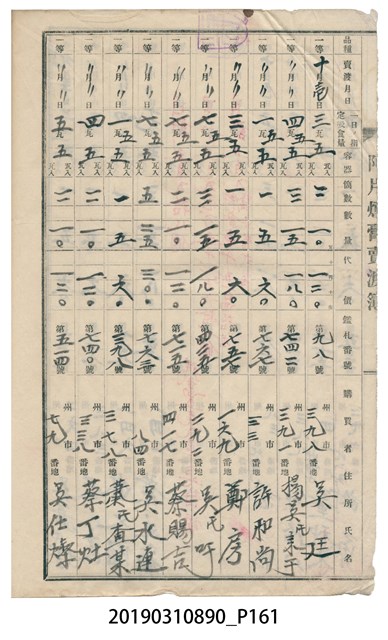 阿片煙膏賣渡簿
品種 賣渡月日 一日ノ指定吸食量 容器 箇數 數量 代價 鑑札番號 購買者住所氏名
一等 十月壱日 三瓦五 五瓦入 二 一〇 一二〇 第九八號 州市三九八番地 吳廷
一等 〃月〃日 四瓦五 五 瓦入 三 一五 一八〇 第七四二號 州市三九一番地
一等 〃月〃日 一瓦五 五瓦入 一 五 六〇 第七六七號 州市三三番地 許和尚
一等 〃月〃日 三瓦五 五瓦入 一 五 六〇 州市一六九番地 鄭房
一等 〃月〃日 七瓦五 五瓦入 三 一五 一八〇 州市二九二番地 吳氏吁
一等 〃月〃日 七瓦五 五瓦入 二 一〇 一二〇 州市四一七番地 蔡賜吉
一等 〃月〃日 七瓦五 五瓦入 五 二五 三〇〇 州市八四番地 吳水連
一等 〃月〃日 一瓦五 五瓦入 一 五 六〇 第三九八號 州市三七八番地
一等 〃月〃日 四瓦五 五瓦入 二 一〇 一二〇 第七四〇號 州市三三八番地 蔡丁灶
一等 〃月〃日 五瓦五 五瓦入 二 一〇 一二〇 第五一四號 州市七九番地 吳仕燦
20190310890_P161